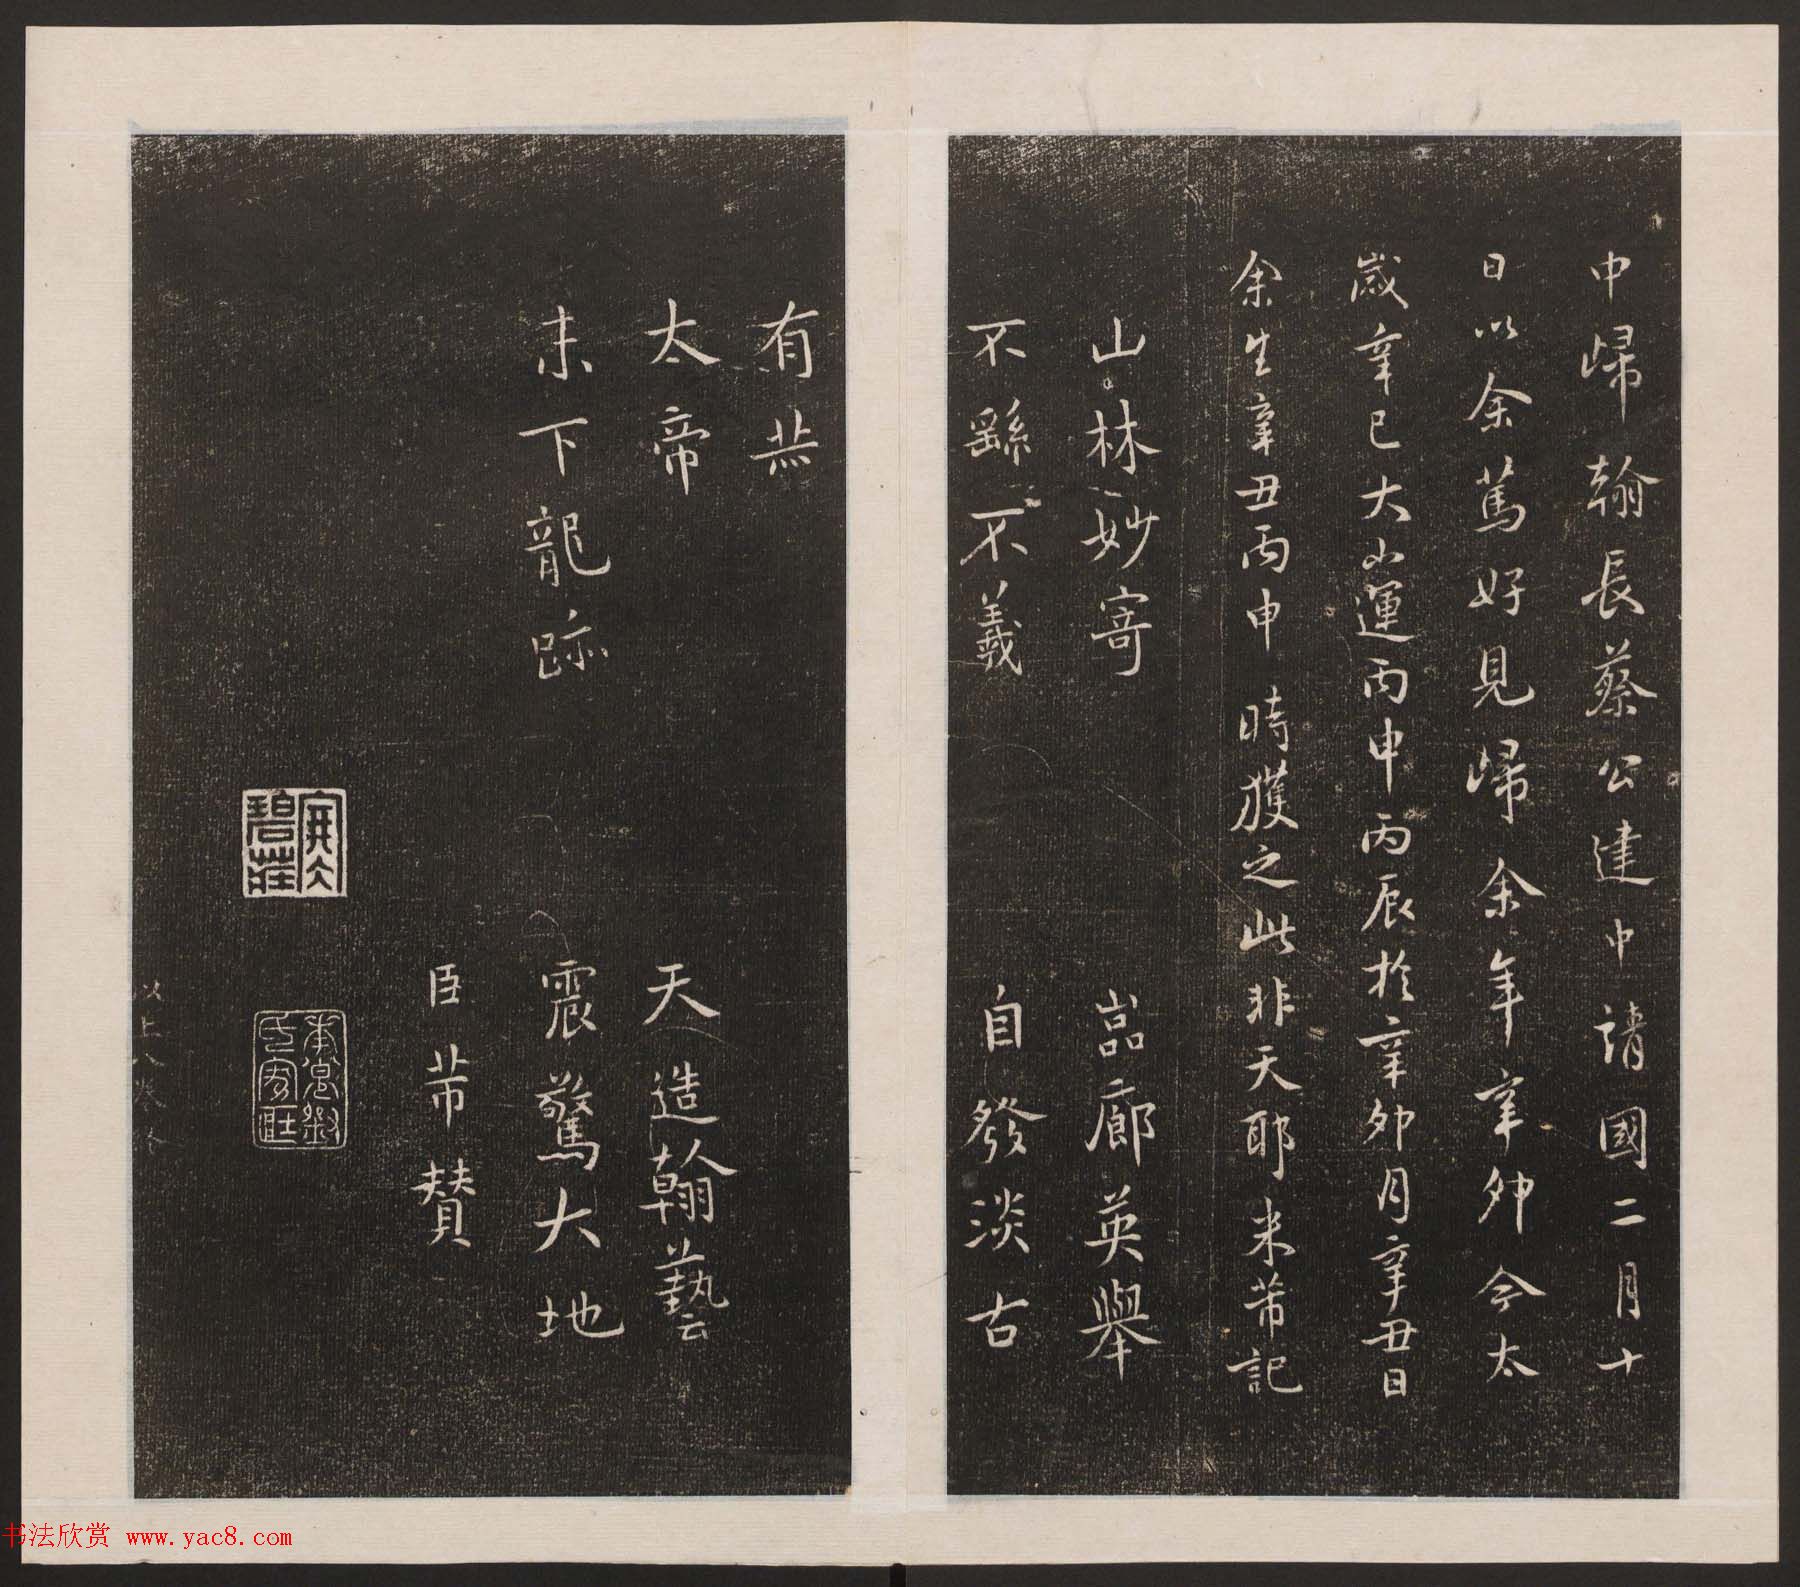 中歸翰長蔡公建中靖國二月十
日以余篤好見歸余年辛卯今太
歲辛巳大小運丙申丙辰於辛卯月辛丑日
余生辛丑丙申時獲之此非天耶米芾記
山林妙寄 嵓廊英舉
不繇不羲 自發淡古
有赫
太帝 天造翰藝
末下龍跡 震驚大地
臣芾贊
以上八
书法欣赏 www.yac8.com